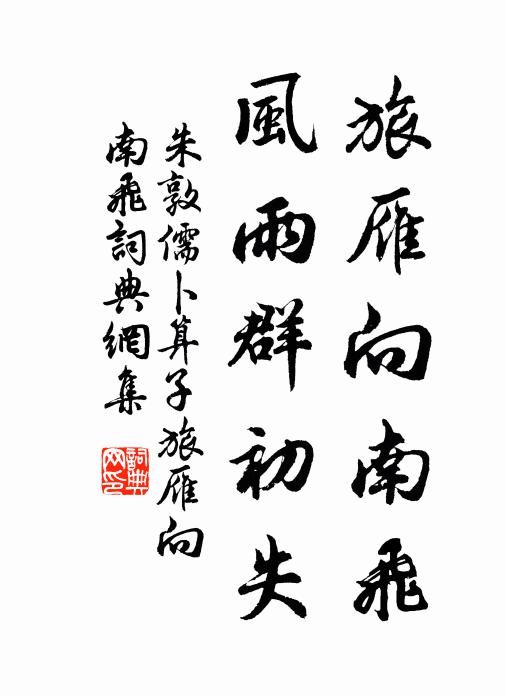 旅雁向南飛
風雨群初失
朱敦儒卜算子旅雁向
南飛詞典網集
詞典
网印